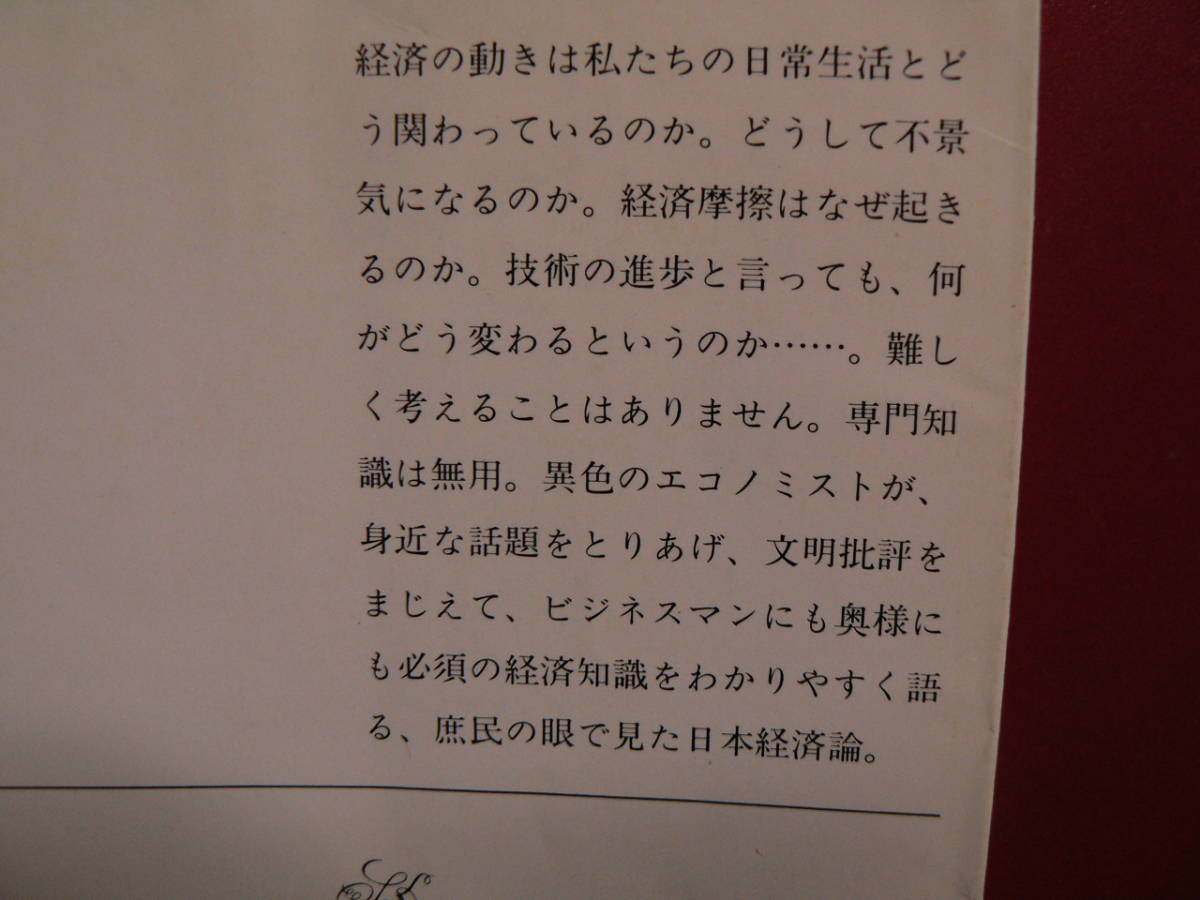 経済の動きは私たちの日常生活とど
う関わっているのか。どうして不景
気になるのか。経済摩擦はなぜ起き
るのか。技術の進歩と言っても、何
がどう変わるというのか……。難し
く考えることはありません。専門知
識は無用。異色のエコノミストが、
身近な話題をとりあげ、文明批評を
まじえて、ビジネスマンにも奥様に
も必須の経済知識をわかりやすく語
る、庶民の眼で見た日本経済論。